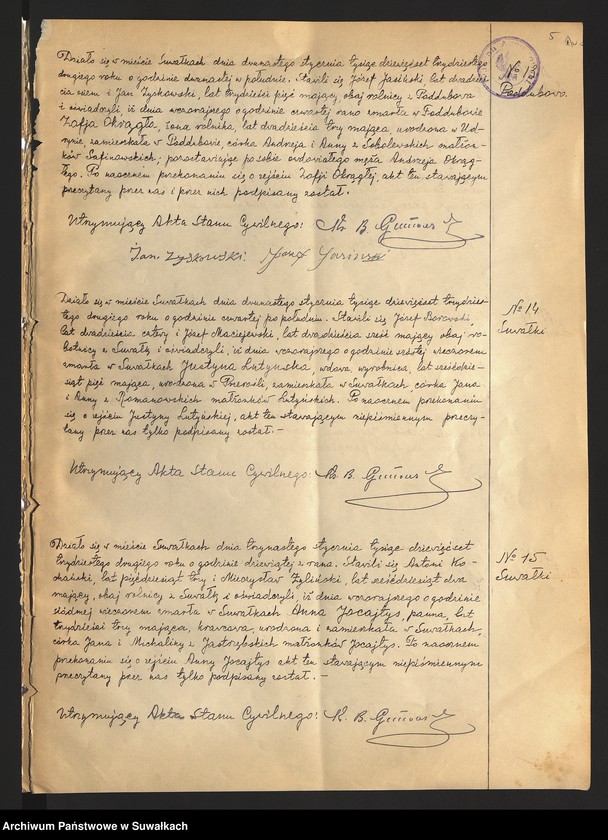 5
Działo się w mieście Suwałkach dnia dwunastego stycznia tysiąc dziewięćset trzydziestego
drugiego roku o godzinie dwunastej w południe. Stawili się Józef Jasiński, lat dwadzieś-
cia siem i Jan Zyskowski, lat trzydzieści pięć mający obaj rolnicy z Poddubowa
i oświadczyli, iż dnia wczorajszego o godzinie czwartej rano zmarła w Poddubowie
Zofja Okrągła, żona rolnika, lat dwadzieścia trzy mająca, urodzona w Ud-
rynie, zamieszkała w Poddubowie, córka Andrzeja i Anny z Sobolewskich małżon-
ków Safinowskich; pozostawiając po sobie owdowiałego męża Andrzeja Okrąg-
łego. Po naocznem przekonaniu się o zejściu Zofji Okrągłej, akt ten stawającym
przeczytany przez nas i przez nich podpisany został.
№
Poddubowo.
Utrzymujący Akta Stanu Cywilnego: Ks. B.
Jan Zyskowski: Józef Jasiński
Działo się w mieście Suwałkach dnia dwunastego stycznia tysiąc dziewięćset trzydzies-
tego drugiego roku o godzinie czwartej po południu. Stawili się Józef Borowski,
lat dwadzieścia cztery i Józef Maciejewski, lat dwadzieścia sześć mający obaj ro-
botnicy z Suwałk i oświadczyli, iż dnia wczorajszego o godzinie szóstej wieczorem
zmarła w Suwałkach Justyna Lutyńska, wdowa, wyrobnica, lat sześćdzie-
siąt pięć mająca, urodzona w Przerośli, zamieszkała w Suwałkach córka Jana
i Anny z Romanowskich małżonków Lutyńskich. Po naocznem przekonaniu
się o zejściu Justyny Lutyńskiej, akt ten stawającym niepiśmiennym przeczy-
tany przez nas tylko podpisany został. —
№ 14
Suwałki
Utrzymujący Akta Stanu Cywilnego: Ks. B.
Działo się w mieście Suwałkach dnia trzynastego stycznia tysiąc dziewięćset
trzydziestego drugiego roku o godzinie dziewiątej z rana. Stawili się Antoni Ko-
chański, lat pięćdziesiąt trzy i Mieczysław Żyliński, lat sześćdziesiąt dwa
mający, obaj rolnicy z Suwałk i oświadczyli, iż dnia wczorajszego o godzinie
siódmej wieczorem zmarła w Suwałkach Anna Jocajtys, panna, lat
trzydzieści trzy mająca, krawcowa, urodzona i zamieszkała w Suwałkach,
córka Jana i Michaliny z Jastrzębskich małżonków Jocajtys. Po naocznem
przekonaniu się o zejściu Anny Jocajtys akt ten stawającym niepiśmiennym
przeczytany przez nas tylko podpisany został. —
№ 15
Suwałki
Utrzymujący Akta Stanu Cywilnego: K. B.
Archiwum Państwowe w Suwałkach